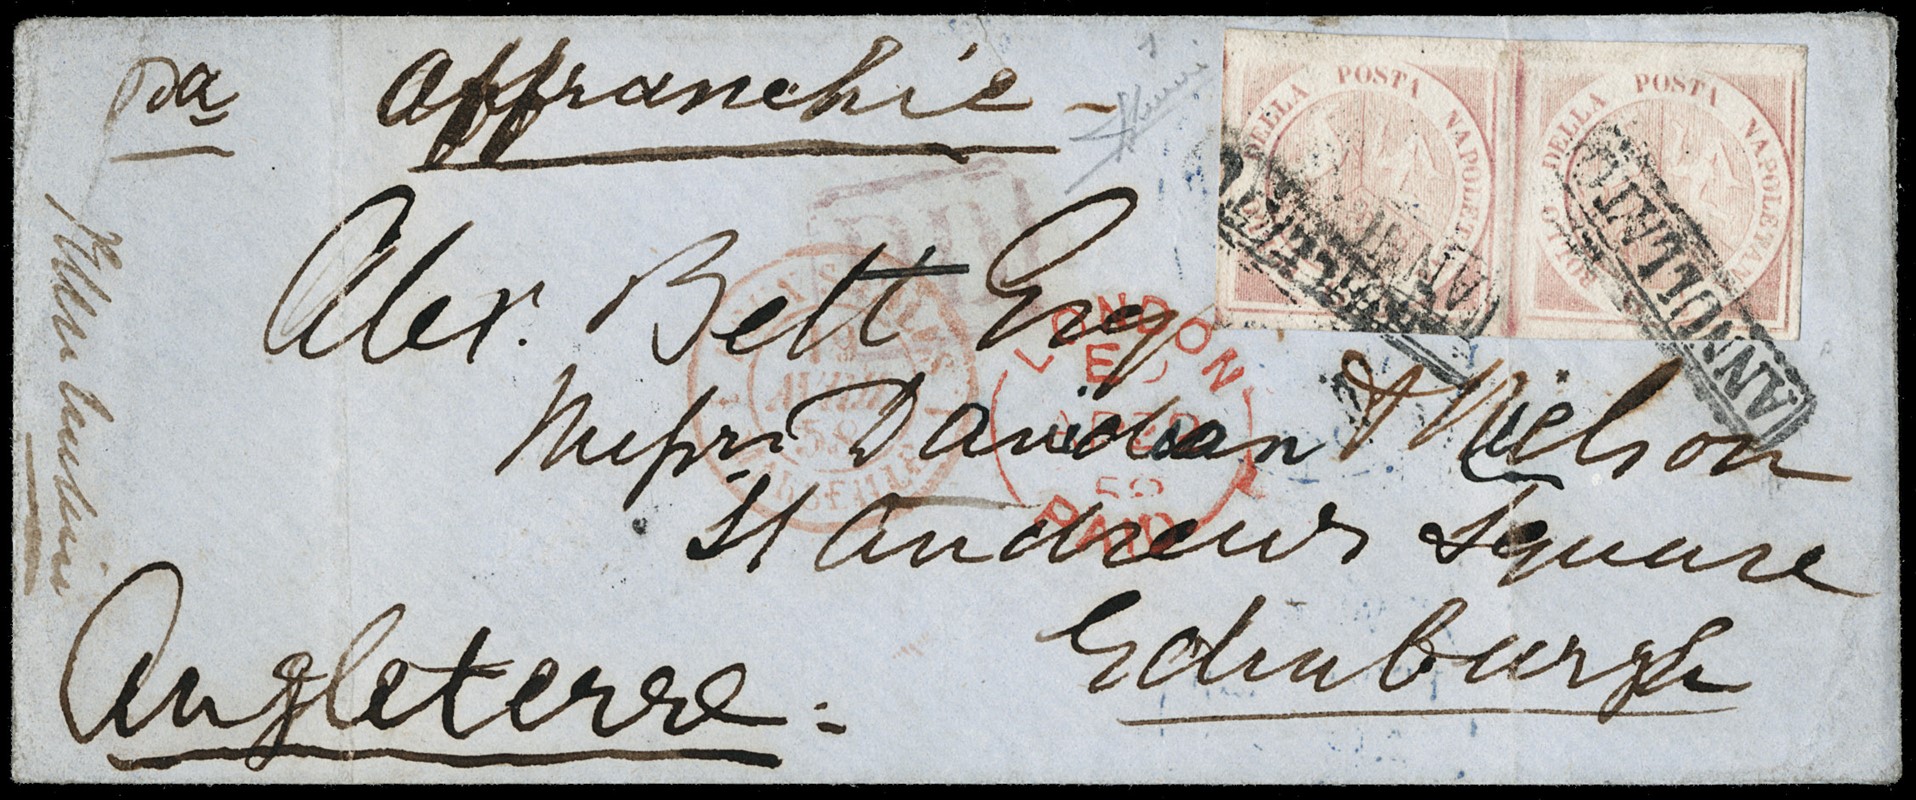 affranchie
Alex. Bett Esq
Messrs Davidson & Nielson
St Andrews Square
Edinburgh
Angleterre
BOLLO DELLA POSTA NAPOLETANA
BOLLO DELLA POSTA NAPOLETANA
ANNULLATO
ANNULLATO
PD
LONDON
AP 20
58
PAID
AVRIL
58